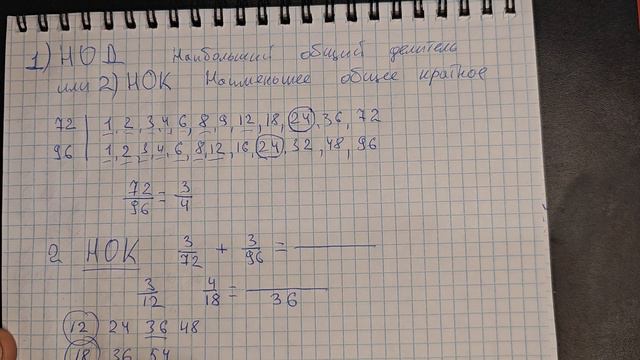 1) НОД Наибольший общий делитель
или 2) НОК Наименьшее общее кратное
72 | 1, 2, 3, 4, 6, 8, 9, 12, 18, 24, 36, 72
96 | 1, 2, 3, 4, 6, 8, 12, 16, 24, 32, 48, 96
72/96 = 3/4
2 НОК 3/72 + 3/96 =
3/12 4/18 = /36
12 24 36 48
18 36 54